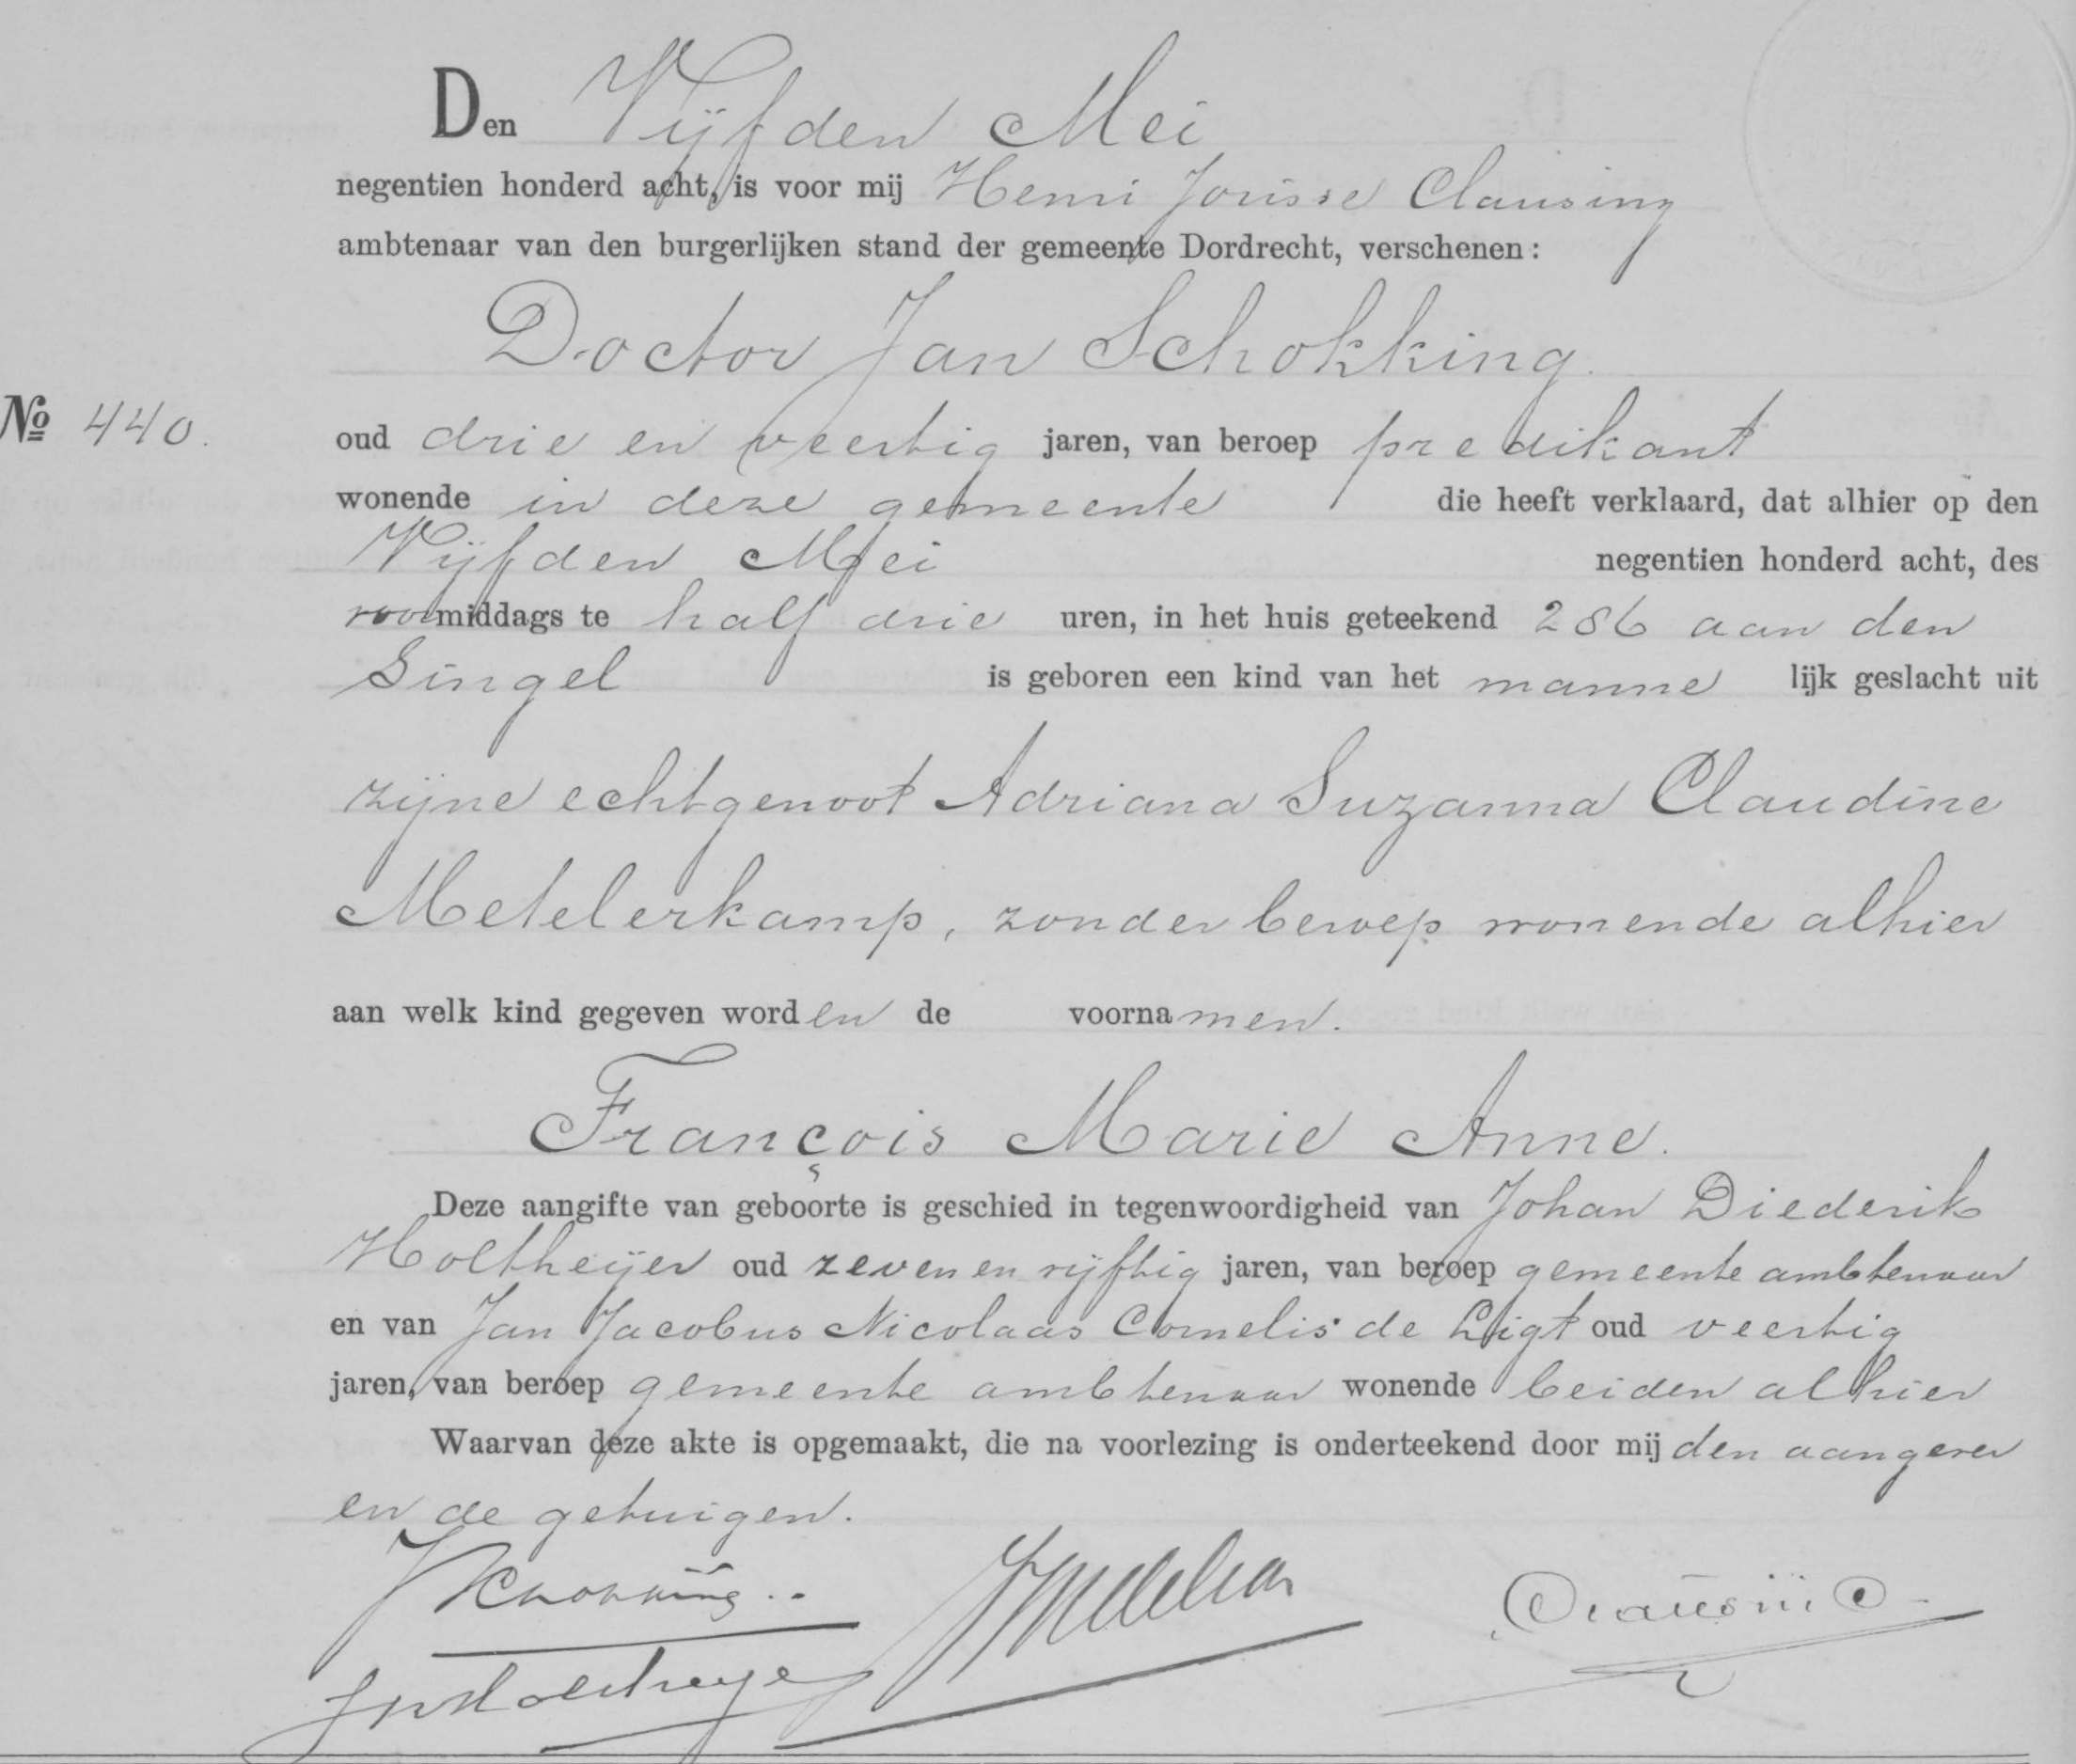 Den Vijfden Mei
negentien honderd acht, is voor mij Henri Jorisse Clausing
ambtenaar van den burgerlijken stand der gemeente Dordrecht, verschenen:
Doctor Jan Schokking
No 440.
oud drie en veertig jaren, van beroep predikant
wonende in deze gemeente die heeft verklaard, dat alhier op den
Vijfden Mei negentien honderd acht, des
voormiddags te half drie uren, in het huis geteekend 286 aan den
Singel is geboren een kind van het manne lijk geslacht uit
zijne echtgenoot Adriana Suzanna Claudine
Metelerkamp, zonder beroep wonende alhier
aan welk kind gegeven worden de voornamen.
François Marie Anne.
Deze aangifte van geboorte is geschied in tegenwoordigheid van Johan Diederik
Holtheijer oud zeven en vijftig jaren, van beroep gemeente ambtenaar
en van Jan Jacobus Nicolaas Cornelis de Ligt oud veertig
jaren, van beroep gemeente ambtenaar wonende beiden alhier
Waarvan deze akte is opgemaakt, die na voorlezing is onderteekend door mij den aangever
en de getuigen.
JSchokking
Clausing
JDHoltheyer